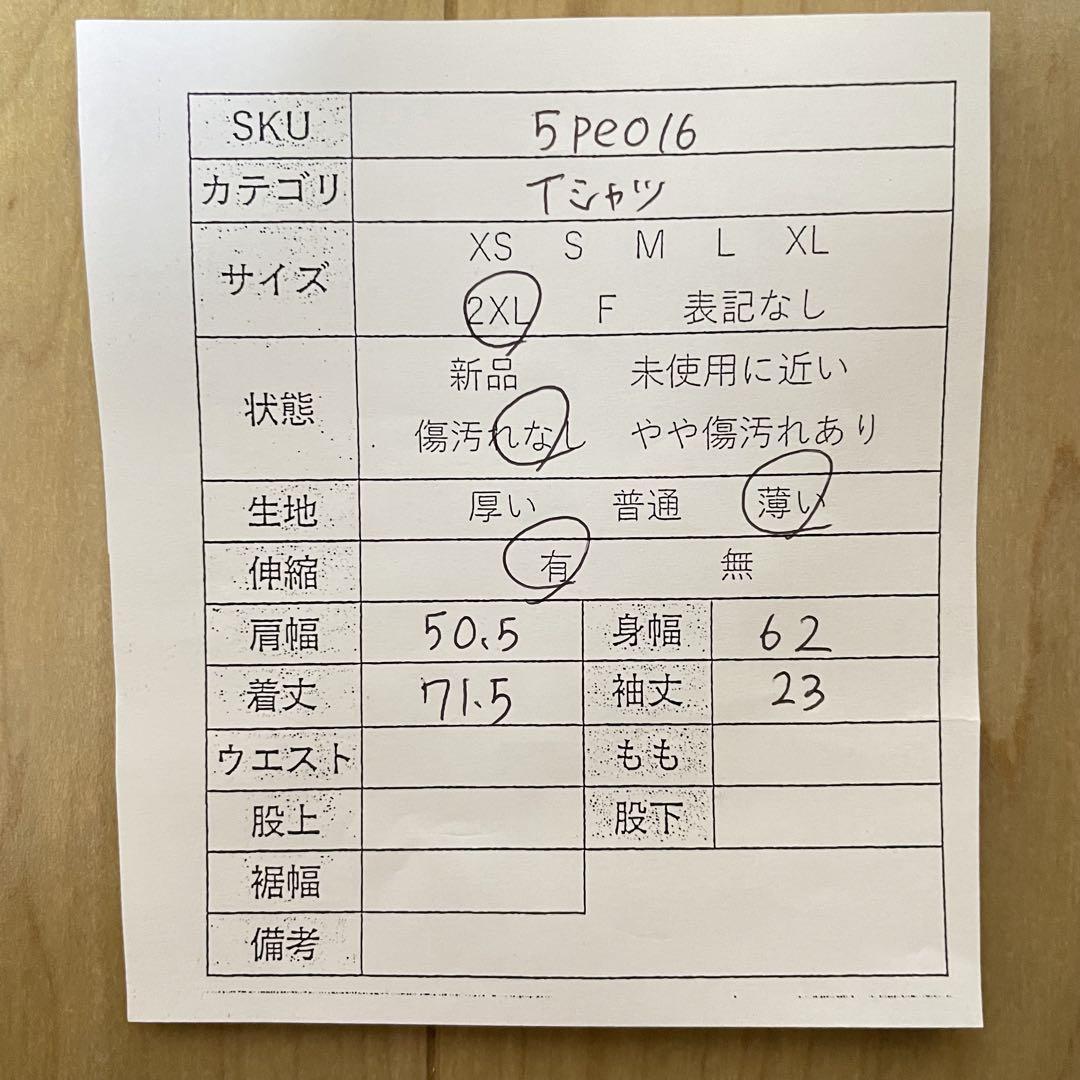 SKU 5peo16
カテゴリ Tシャツ
サイズ XS S M L XL
2XL F 表記なし
状態 新品 未使用に近い
傷汚れなし やや傷汚れあり
生地 厚い 普通 薄い
伸縮 有 無
肩幅 50.5 身幅 62
着丈 71.5 袖丈 23
ウエスト もも
股上 股下
裾幅
備考